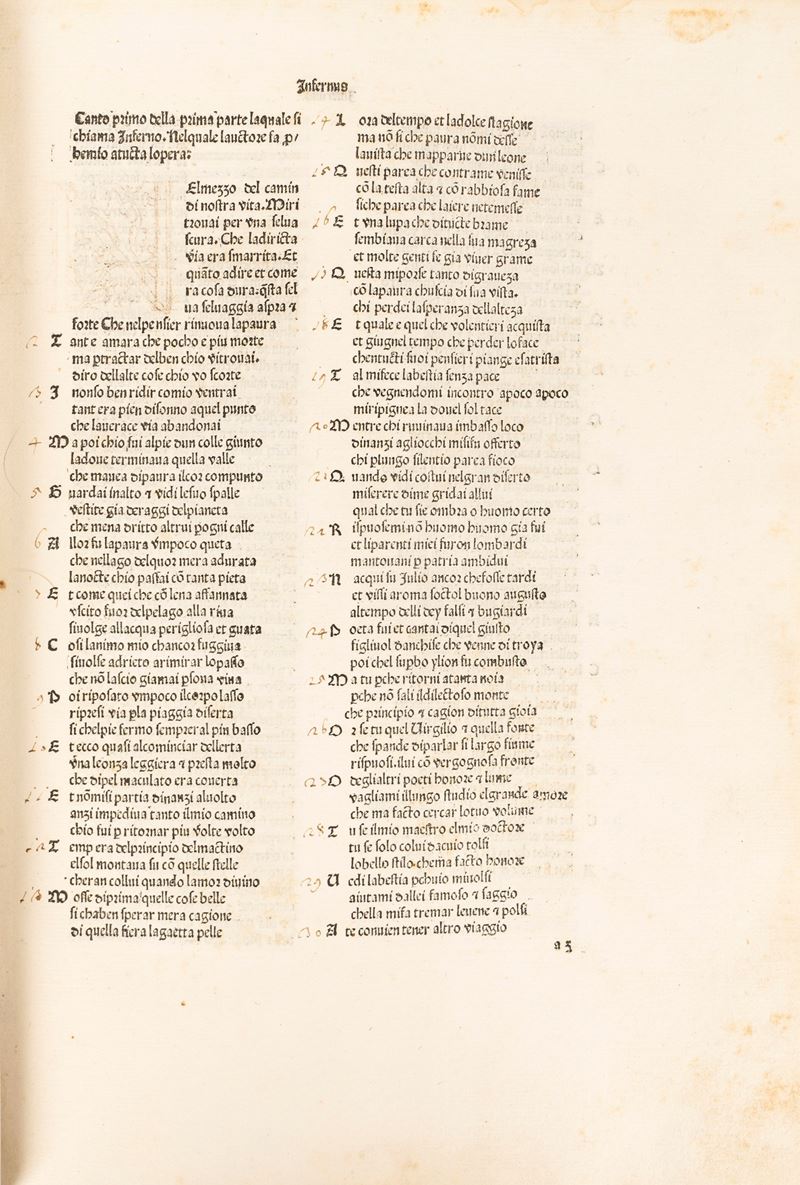 Infernus
Canto primo della prima parte laquale si
chiama Inferno. Nelquale lauctore fa ꝓ/
hemio atucta lopera:
Elmezzo del camin
di nostra vita. Miri
trouai per vna selua
scura. Che ladiricta
via era smarrita. Et
quãto adire et come
ra cosa dura: q̃sta sel
ua seluaggia aspra ⁊
forte Che nelpensier rinuoua lapaura
2 T ant e amara che pocho e piu morte
ma ꝑtractar delben chio vitrouai.
diro dellalte cose chio vo scorte
3 I nonso ben ridir comio ventrai
tant era pien disonno aquel punto
che lauerace via abandonai
4 M a poi chio fui alpie dun colle giunto
ladoue terminaua quella valle
che mauea dipaura ilcor compunto
5 G uardai inalto ⁊ vidi lesuo spalle
vestite gia deraggi delpianeta
che mena dritto altrui ꝑogni calle
6 A llor fu lapaura vmpoco queta
che nellago delquor mera adurata
lanocte chio passai cõ tanta pieta
7 E t come quei che cõ lena affannata
vscito fuor delpelago alla riua
siuolge allacqua perigliosa et guata
8 C osi lanimo mio chancor fuggiua
siuolse adrieto arimirar lopasso
che nõ lascio giamai ꝑsona viua
9 P oi riposato vmpoco ilcorpo lasso
ripresi via ꝑla piaggia diserta
si chelpie fermo sempreral piu basso
10 E t ecco quasi alcominciar dellerta
vna leonza leggiera ⁊ presta molto
che dipel maculato era couerta
11 E t nõmisi partia dinanzi aluolto
anzi impediua tanto ilmio camino
chio fui ꝑ ritornar piu volte volto
12 T emp era delprincipio delmactino
elsol montaua su cõ quelle stelle
cheran collui quando lamor diuino
13 M osse diprima quelle cose belle
si chaben sperar mera cagione
di quella fiera lagaetta pelle
14 L ora deltempo et ladolce stagione
ma nõ si che paura nõmi desse
lauista che mapparue dun leone
15 Q uesti parea che contrame venisse
cõ la testa alta ⁊ cõ rabbiosa fame
siche parea che laiere netemesse
16 E t vna lupa che ditucte brame
sembiaua carca nella sua magreza
et molte genti fe gia viuer grame
17 Q uesta miporse tanto digraueza
cõ lapaura chuscia di sua vista.
chi perdei lasperanza dellalteza
18 E t quale e quel che volentieri acquista
et giugnel tempo che perder loface
chentucti suoi pensieri piange esatrista
19 T al mifece labestia senza pace
che vegnendomi incontro apoco apoco
miripignea la douel sol tace
20 M entre chi ruuinaua imbasso loco
dinanzi agliocchi misifu offerto
chi plungo silentio parea fioco
21 Q uando vidi costui nelgran diserto
miserere dime gridai allui
qual che tu sie ombra o huomo certo
22 R ispuosemi nõ huomo huomo gia fui
et liparenti miei furon lombardi
mantouani ꝑ patria ambidui
23 N acqui su Julio ancor chefosse tardi
et vissi aroma soctol buono augusto
altempo delli dey falsi ⁊ bugiardi
24 P oeta fui et cantai diquel giusto
figliuol danchise che venne di troya
poi chel supbo ylion fu combusto
25 M a tu ꝑche ritorni atanta noia
ꝑche nõ sali ildilectoso monte
che principio ⁊ cagion ditutta gioia
26 O r se tu quel Uirgilio ⁊ quella fonte
che spande diparlar si largo fiume
rispuosi. ilui cõ vergognosa fronte
27 O deglialtri poeti honore ⁊ lume
vagliami illungo studio elgrande amore
che ma facto cercar lotuo volume
28 T u se ilmio maestro elmio doctore
tu se solo colui dacuio tolsi
lobello stilo.chema facto honore
29 U edi labestia ꝑchuio miuolsi
aiutami dallei famoso ⁊ saggio
chella mifa tremar leuene ⁊ polsi
30 A te conuien tener altro viaggio
a 3